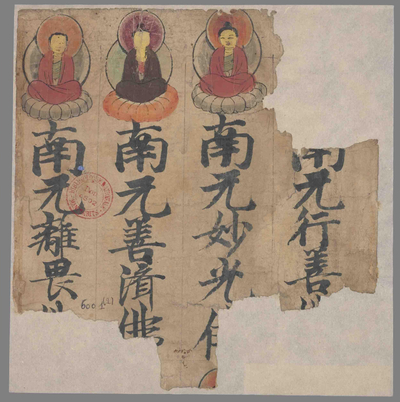 南无行善
南无妙光佛
南无善清佛
南无離畏
600